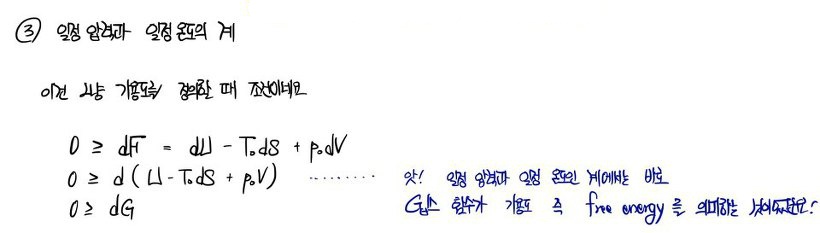 ③ 일정 압력과 일정 온도의 계
이건 그냥 가용도를 정의할 때 조건이네요
0 ≥ dF = dU - T₀dS + p₀dV
0 ≥ d(U - T₀dS + p₀V) ········ 앗! 일정 압력과 일정 온도인 계에서는 바로
0 ≥ dG 깁스 함수가 가용도 즉 free energy를 의미하는 것이었군요!